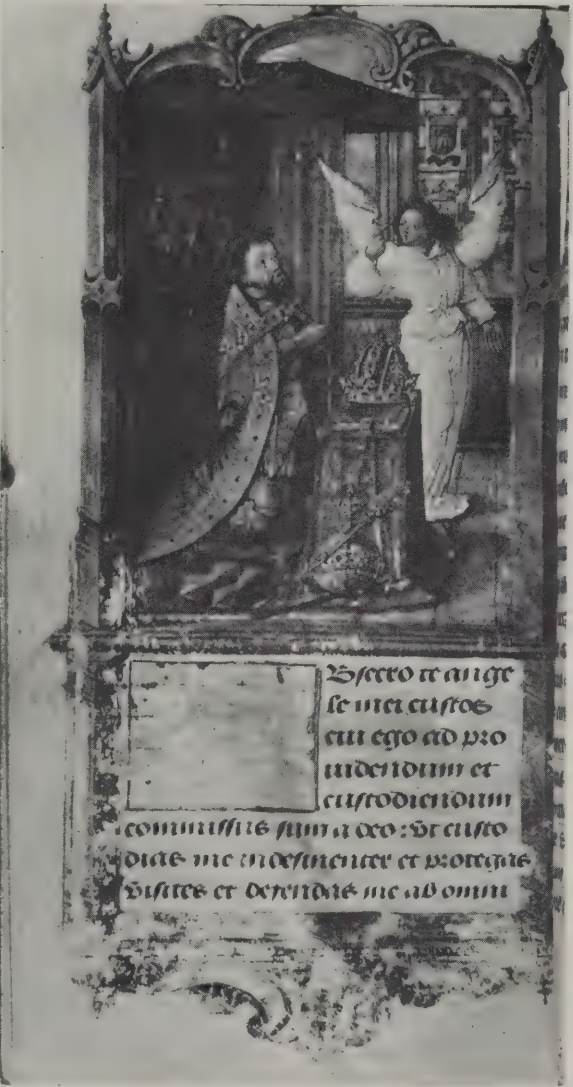 Bsecro te ange
le mei custos
cui ego ad pro
uidendum et
custodiendum
commissus sum a deo: Vt custo
dias me indesinenter et protegas
visites et defendas me ab omni